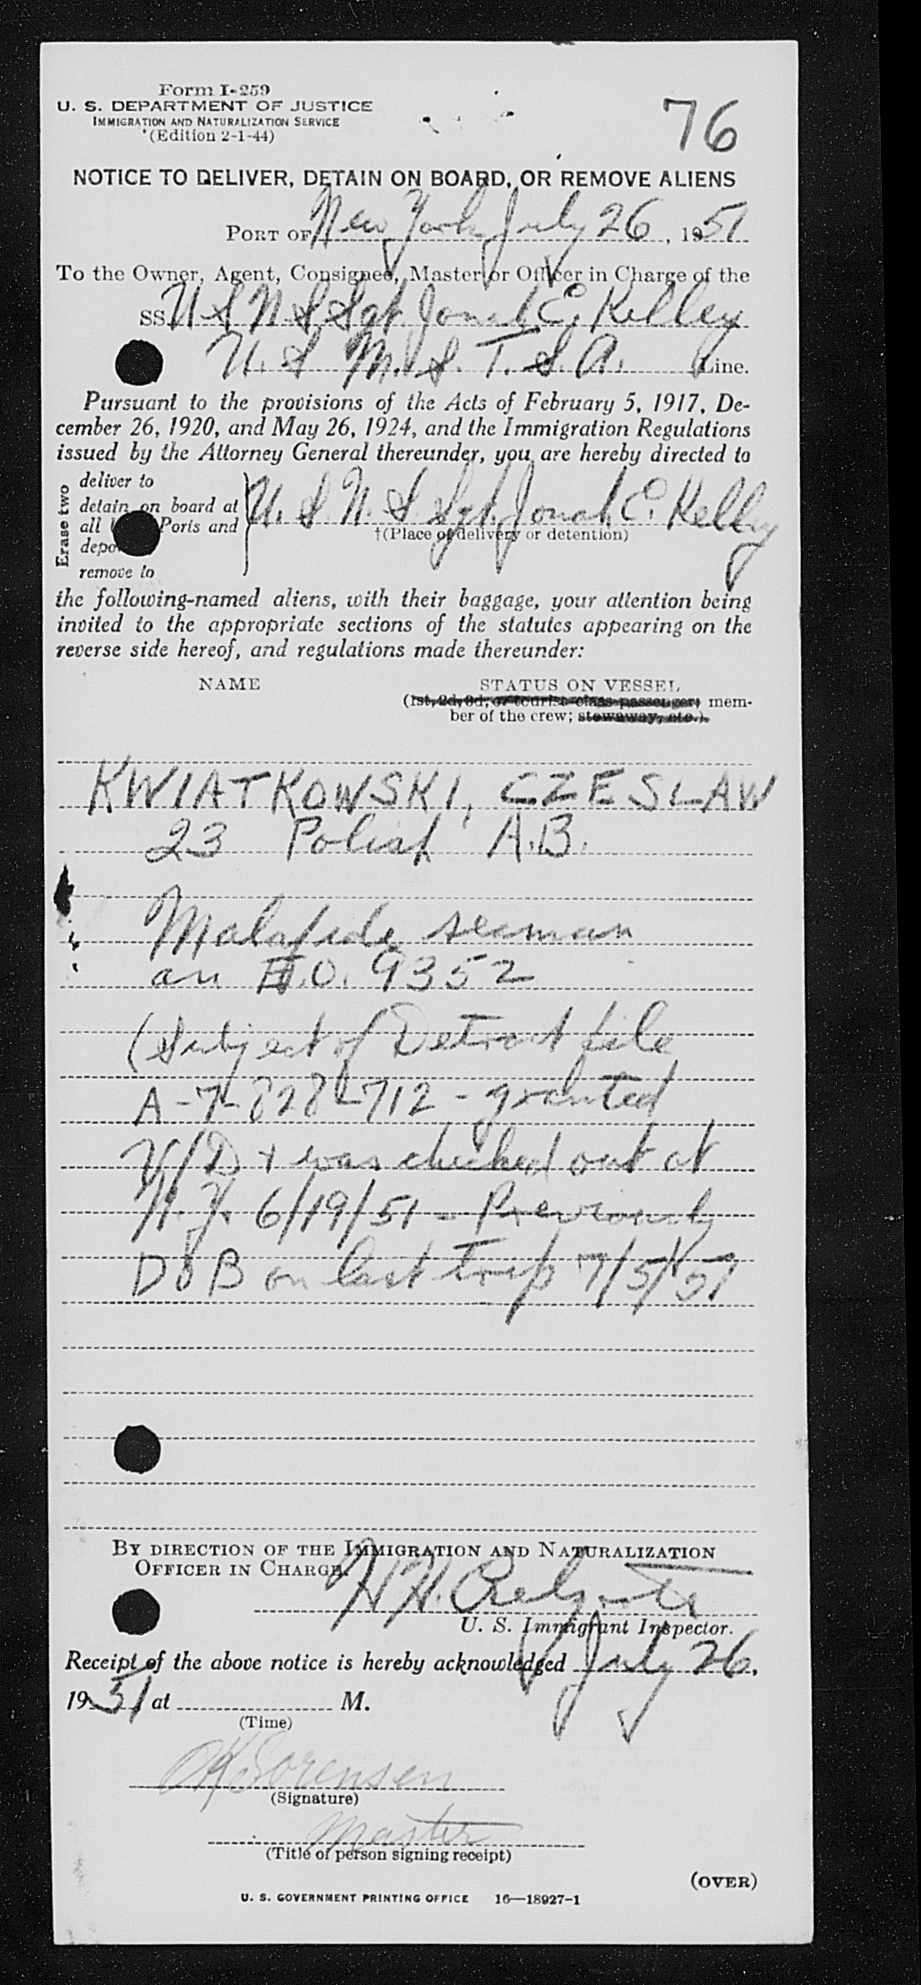 Form I-259
U. S. DEPARTMENT OF JUSTICE
IMMIGRATION AND NATURALIZATION SERVICE
(Edition 2-1-44)
76
NOTICE TO DELIVER, DETAIN ON BOARD, OR REMOVE ALIENS
PORT OF New York, July 26, 1951
To the Owner, Agent, Consignee, Master or Officer in Charge of the
SS U S N S Sgt Jonah E. Kelley
U. S. M. S. T. S. A. Line.
Pursuant to the provisions of the Acts of February 5, 1917, De-
cember 26, 1920, and May 26, 1924, and the Immigration Regulations
issued by the Attorney General thereunder, you are hereby directed to
Erase two
deliver to
detain on board at
all Ports and
depo
remove to
U. S. N. S Sgt. Jonah E. Kelley
†(Place of delivery or detention)
the following-named aliens, with their baggage, your attention being
invited to the appropriate sections of the statutes appearing on the
reverse side hereof, and regulations made thereunder:
NAME STATUS ON VESSEL
(1st, 2d, 3d, or tourist-class passenger; mem-
ber of the crew; stowaway, etc.).
KWIATKOWSKI, CZESLAW
23 Polish A.B.
Malafide seaman
an E.O. 9352
(Subject of Detroit file
A-7-828-712 - granted
V/D + was checked out at
N.Y. 6/19/51 - Previously
DOB on last trip 7/5/51
BY DIRECTION OF THE IMMIGRATION AND NATURALIZATION
OFFICER IN CHARGE.
H.H.
U. S. Immigrant Inspector.
Receipt of the above notice is hereby acknowledged July 26,
1951 at M.
(Time)
OK Sorensen
(Signature)
Master
(Title of person signing receipt)
(OVER)
U. S. GOVERNMENT PRINTING OFFICE 16—18927-1